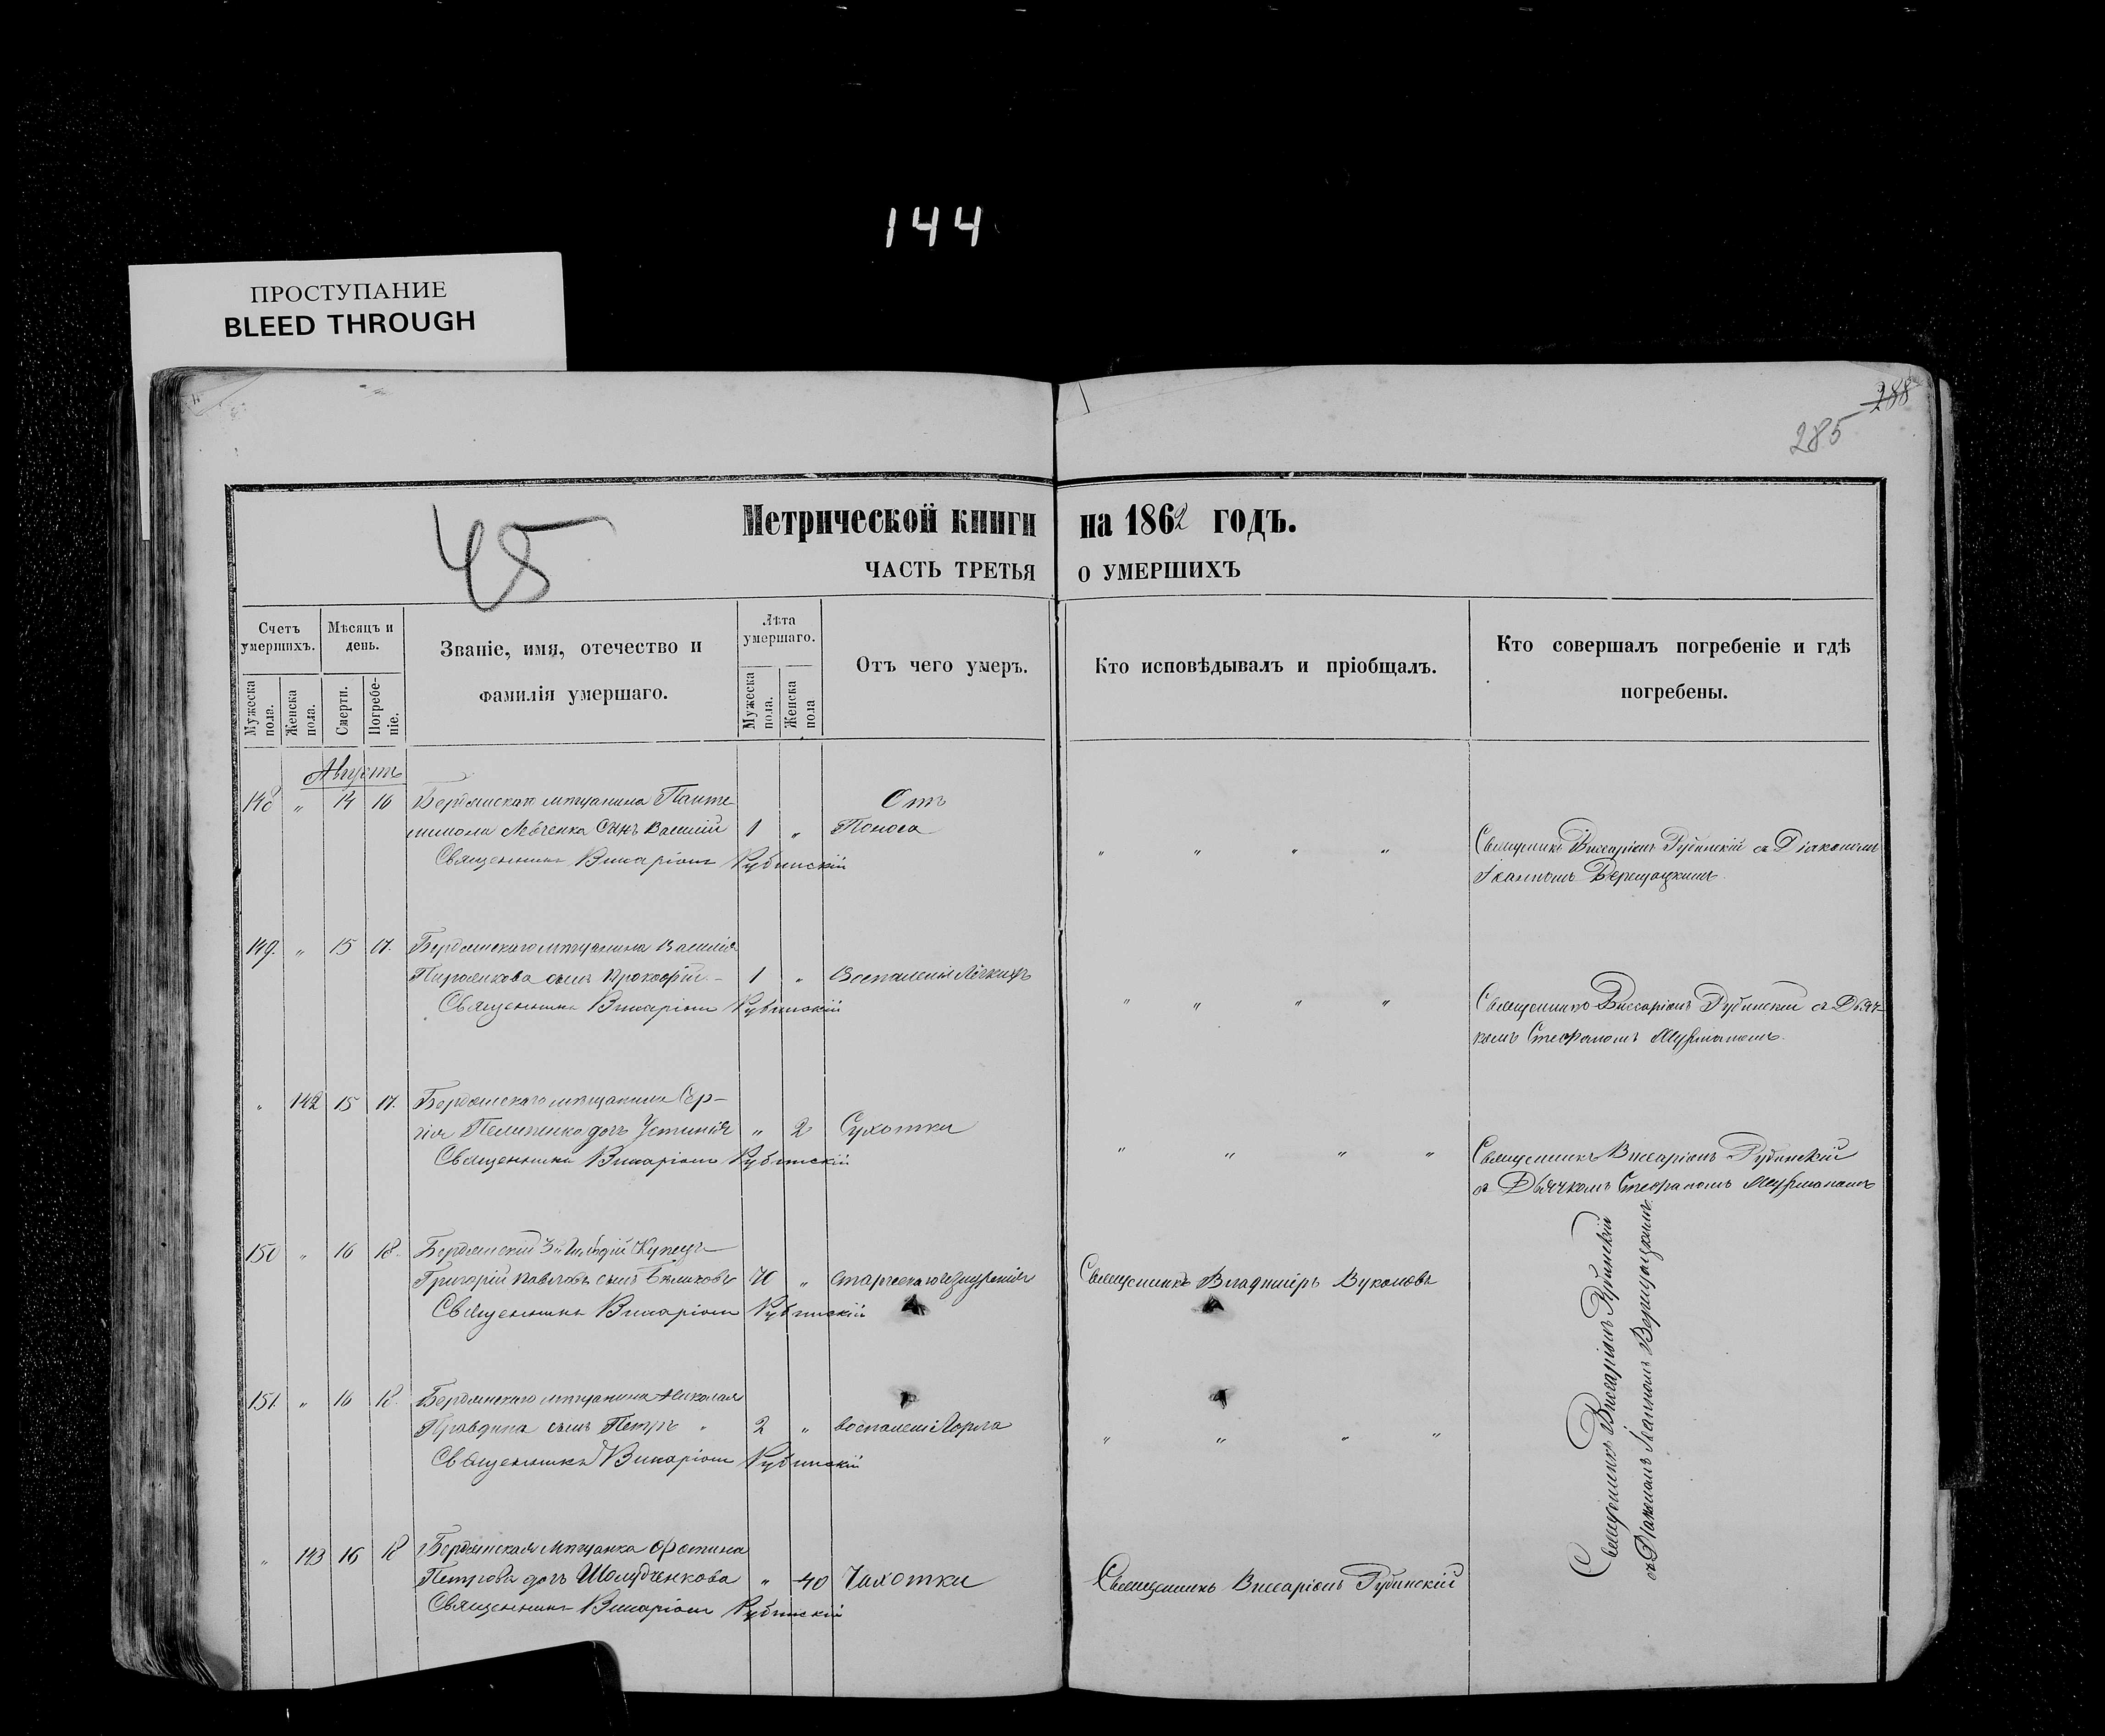 144
ПРОСТУПАНИЕ
BLEED THROUGH
288
285
45
Метрической книги на 1862 годъ.
ЧАСТЬ ТРЕТЬЯ О УМЕРШИХЪ
Счетъ умершихъ.
Мѣсяцъ и день.
Званіе, имя, отечество и фамилія умершаго.
Лѣта умершаго.
Отъ чего умеръ.
Кто исповѣдывалъ и пріобщалъ.
Кто совершалъ погребеніе и гдѣ погребены.
Мужеска пола.
Женска пола.
Смерти.
Погребеніе.
Мужеска пола.
Женска пола
Августъ
148 " 14 16 Бердянскаго мѣщанина Панте-
Сынъ Василій 1 " Отъ Поноса
Священникъ Висаріонъ Рубинскій
" " " "
Священникъ Виссаріонъ Рубинскій съ Діакономъ
Іоанномъ Верещацкимъ
149. " 15 17. Бердянскаго мѣщанина Василія
сынъ Прокофій 1 " Воспаленія Лёгкихъ
Священникъ Висаріонъ Рубинскій
" " " "
Священникъ Виссаріонъ Рубинскій съ Дьяч-
комъ Стефаномъ
" 142 15 17. Бердянскаго мѣщанина Сер-
гія Пелипенко дочь Устинія " 2 Сухотки
Священникъ Висаріонъ Рубинскій
" " " "
Священникъ Виссаріонъ Рубинскій
съ Дьячкомъ Стефаномъ
150 " 16 18. Бердянскій 3й Гильдій Купецъ
Григорій Павловъ сынъ 70 " старческаго изнуренія
Священникъ Висаріонъ Рубинскій
Священникъ Владиміръ
151. " 16 18. Бердянскаго мѣщанина Николая
Правдина сынъ Петръ " 2 " воспаленія Горла
Священникъ Висаріонъ Рубинскій
" " " "
" 143 16 18 Бердянская Мѣщанка Фотина
Петрова дочь Шолудченкова " 40 Чахотки
Священникъ Висаріонъ Рубинскій
Священникъ Виссаріонъ Рубинскій
Священникъ Виссаріонъ Рубинскій
съ Діакономъ Іоанномъ Верещацкимъ